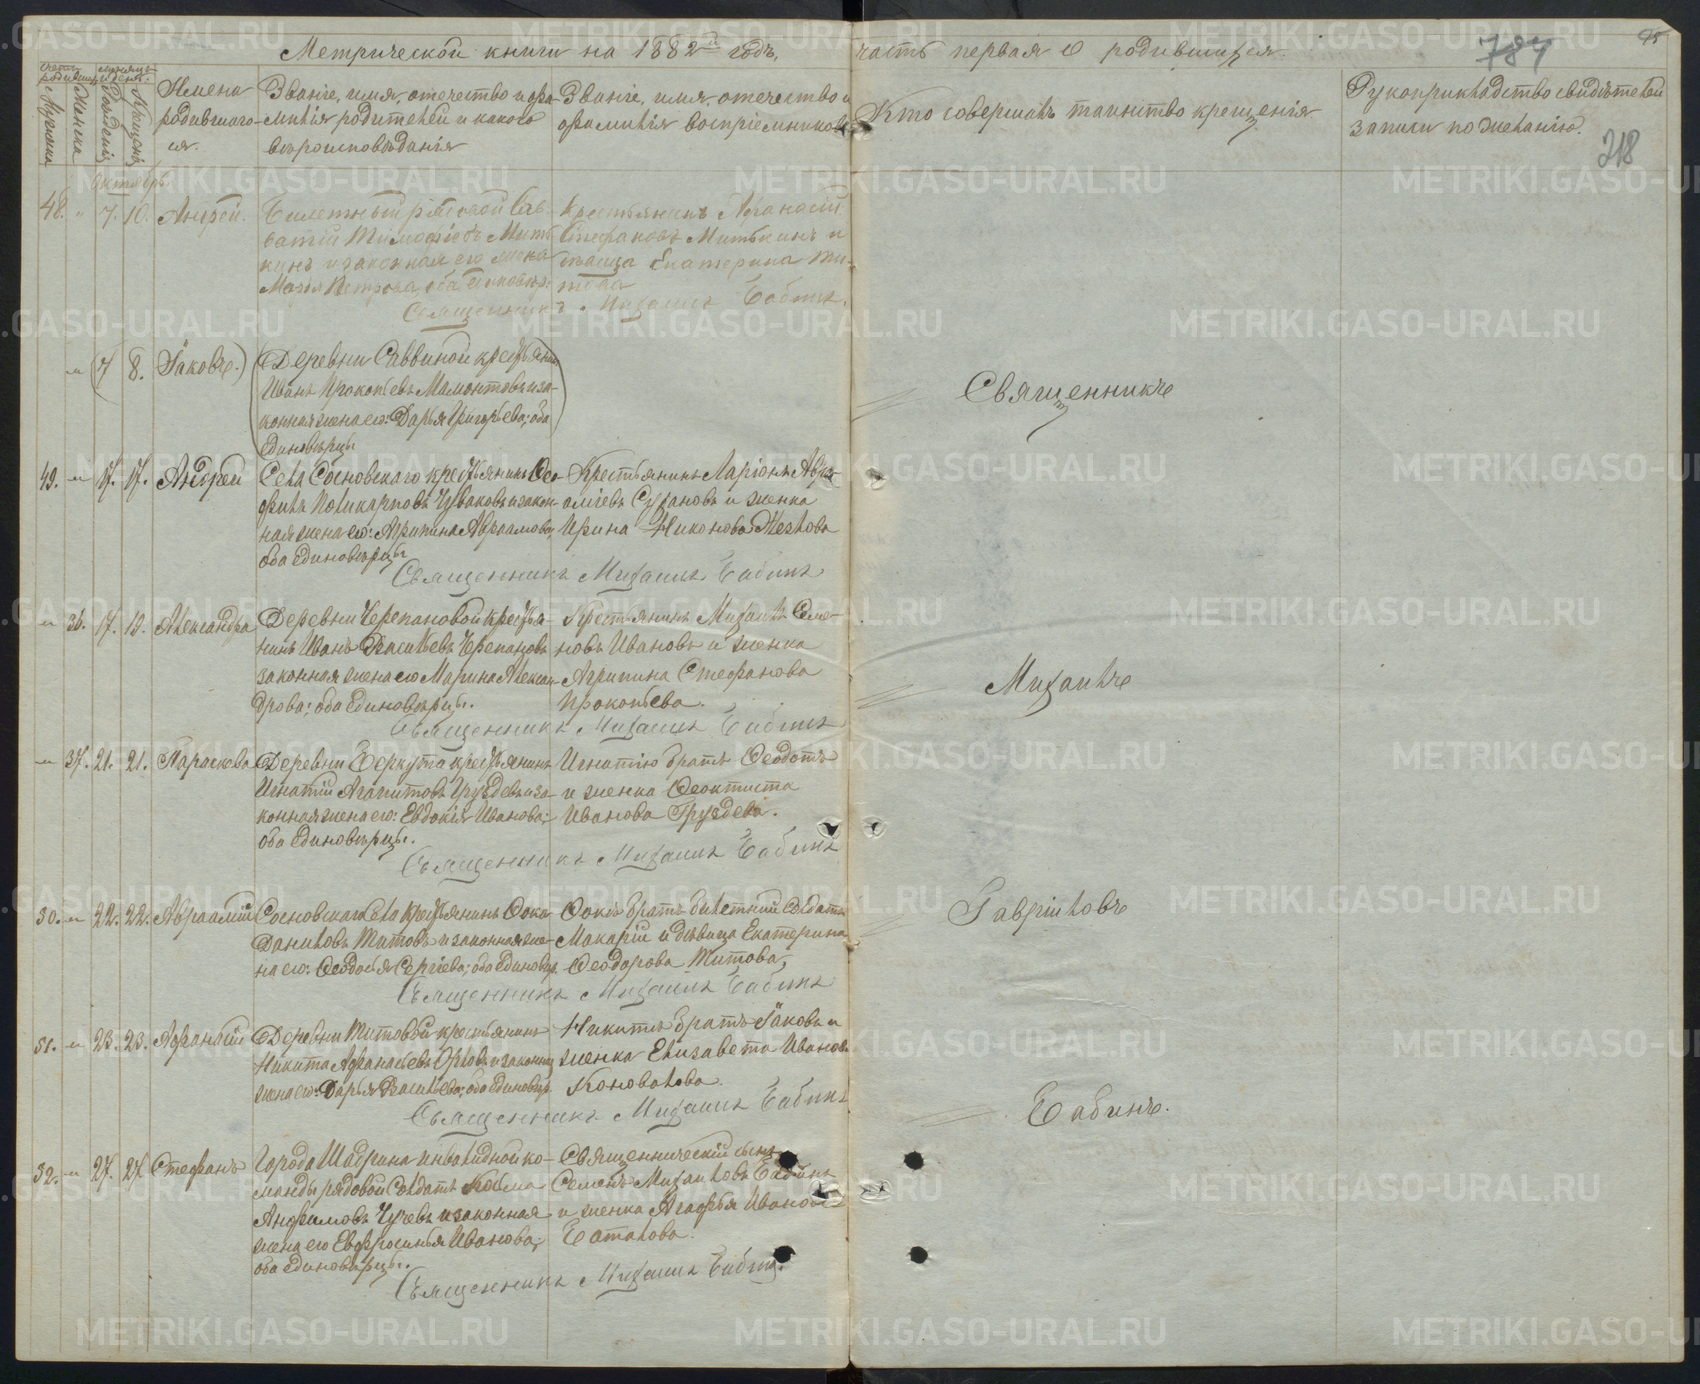 Метрической книги на 1882й годъ,
часть первая о родившихся.
784
218
Счетъ родившихся
Мужеска
Женска
Мѣсяцъ и день.
Рожденія
Крещенія
Имена
родившихся.
Званіе, имя, отечество и фа-
милія родителей и какого
вѣроисповѣданія
Званіе, имя, отечество и
фамилія воспріемниковъ
Кто совершалъ таинство крещенія
Рукоприкладство свидѣтелей
записи по желанію.
Октябрь
48. " 7. 10. Андрей.
Билетный рядовой Сав-
ватій Тимофѣевъ Мить-
кинъ и законная его жена
Марѳа Петрова, оба единовѣр.
Крестьянинъ Аѳанасій
Стефановъ Митькинъ и
дѣвица Екатерина Ти-
това
Священникъ Михаилъ Бабинъ.
" (7 8. Іаковъ.)
(Деревни Саввиной крестьянинъ
Иванъ Прокопьевъ Мамонтовъ и за-
конная жена его: Дарья Григорьева; оба
единовѣрцы)
49. " 17. 17. Андрей
Села Сосновскаго крестьянинъ Ѳео-
филъ Поликарповъ Чуваковъ и закон-
ная жена его: Агрипина Авраамова;
оба единовѣрцы
Крестьянинъ Ларіонъ
Сухановъ и женка
Ирина Никонова
Священникъ Михаилъ Бабинъ
" 36. 17. 19. Александра
Деревни Черепановой крестья-
нинъ Иванъ Васильевъ Черепановъ
законная жена его Марина Алексан-
дрова; оба единовѣрцы.
Крестьянинъ Михаилъ Семе-
новъ Ивановъ и женка
Агрипина Стефанова
Прокопьева.
Священникъ Михаилъ Бабинъ
" 37. 21. 21. Параскева
Деревни Беркута крестьянинъ
Игнатій Агапитовъ Груздевъ и за-
конная жена его: Евдокія Иванова;
оба единовѣрцы.
Игнатію братъ Ѳеодотъ
и женка Ѳеоктиста
Иванова Груздева.
Священникъ Михаилъ Бабинъ
50. " 22. 22. Авраамій
Сосновскаго Села крестьянинъ Ѳока
Даниловъ Титовъ и законная же-
на его: Ѳеодосья Сергіева; оба единовѣр.
Ѳокѣ братъ билетный солдатъ
Макарій и дѣвица Екатерина
Ѳеодорова Титова,
Священникъ Михаилъ Бабинъ
51. " 23. 23. Аѳанасій
Деревни Титовой крестьянинъ
Никита Аѳанасьевъ Орловъ и законная
жена его: Дарья Васильева; оба единовѣр.
Никитѣ братъ Іаковъ и
женка Елизавета Иванова
Коновалова.
Священникъ Михаилъ Бабинъ
52. " 27. 27. Стефанъ
Города Шадрина инвалидной ко-
манды рядовой солдатъ Козма
Анфимовъ Чучевъ и законная
жена его Евфросинья Иванова;
оба единовѣрцы.
Священническій сынъ
Семенъ Михаиловъ Бабинъ
и женка Агафья Иванова
Баталова.
Священникъ Михаилъ Бабинъ.
Священникъ
Михаилъ
Гавріиловъ
Бабинъ.
METRIKI.GASO-URAL.RU